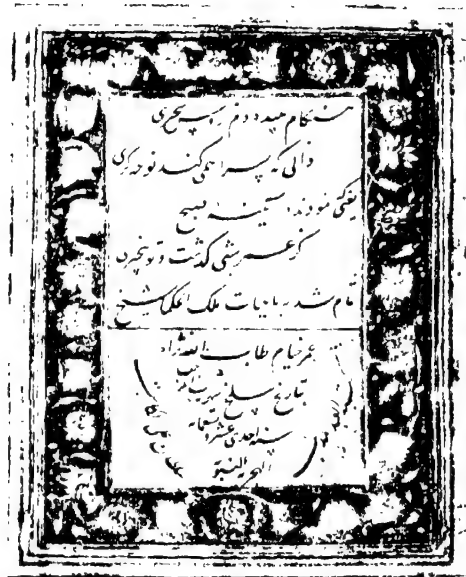 هنگام سپیده دم خروس سحری
دانی که چرا همی کند نوحه گری
یعنی نمودند در آیینه صبح
کز عمر شبی گذشت و تو بیخبری
تمام شد رباعیات ملک الحکما شیخ
عمر خیام طاب الله ثراه
بتاریخ سلخ شهر
سنه احدی عشر و تسعمایه
الهجریه النبویه